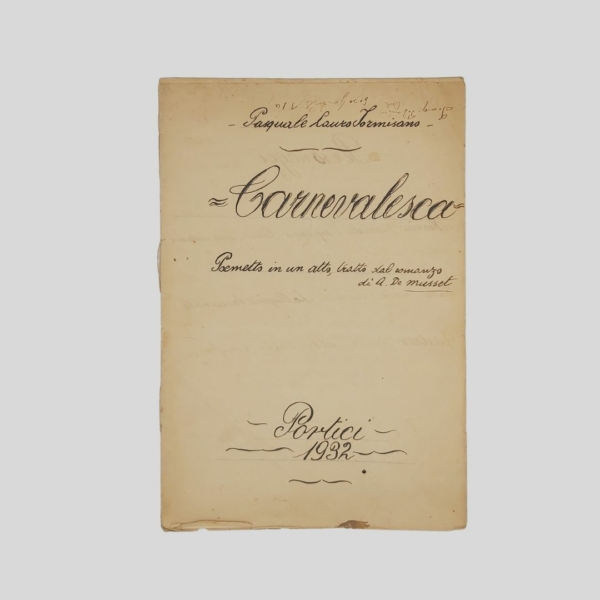 - Pasquale Lauro Tormisano -
≈ Carnevalesca ≈
Poemetto in un atto, tratto dal romanzo
di A. De Musset
- Portici -
1932